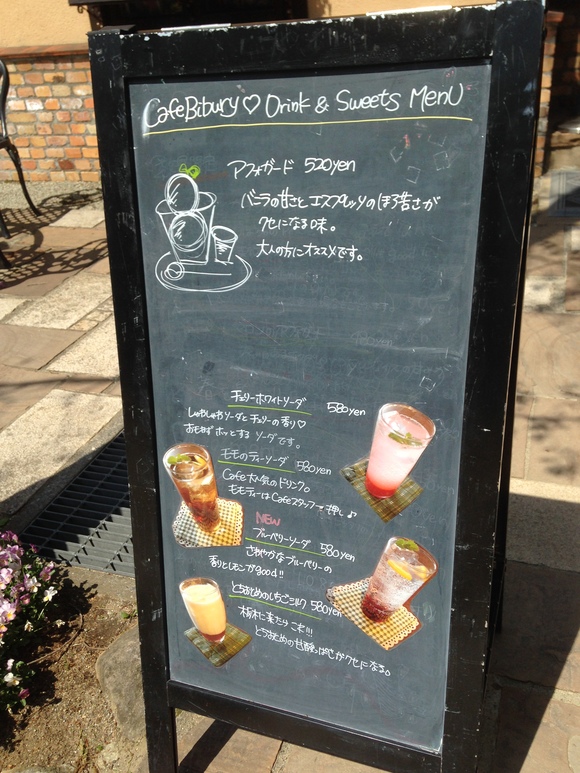 Cafe Bibury♡ Drink & Sweets Menu
アフォガード 520yen
バニラの甘さとエスプレッソのほろ苦さが
クセになる味。
大人の方にオススメです。
チェリーホワイトソーダ 580yen
しゅわしゅわソーダとチェリーの香り♡
おもわずホッとする ソーダです。
モモのティーソーダ 580yen
Cafe大人気のドリンク。
モモティーはCafeスタッフ一押し♪
NEW
ブルーベリーソーダ 580yen
さわやかなブルーベリーの
香りとレモンがgood!!
とちおとめのいちごミルク 580yen
栃木に来たらこれ!!!
とちおとめの甘酸っぱさがクセになる。